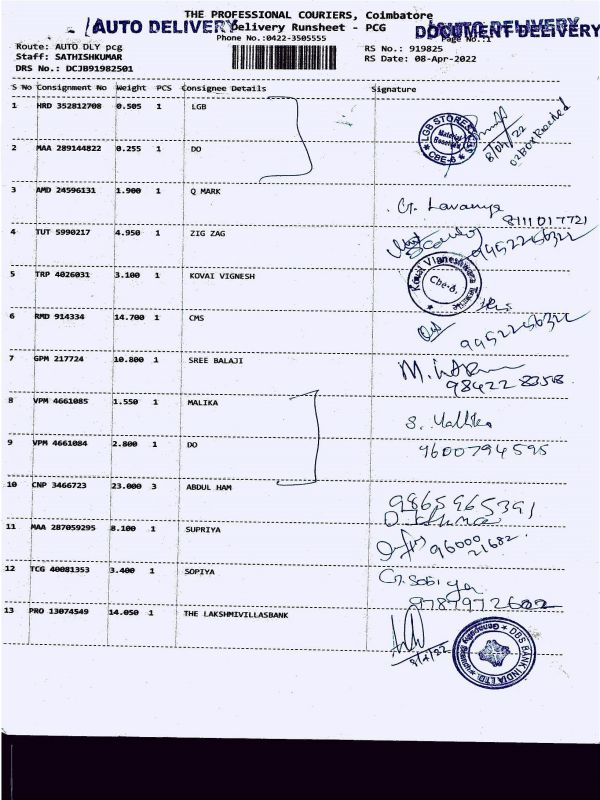 THE PROFESSIONAL COURIERS, Coimbatore
/AUTO DELIVERY Delivery Runsheet - PCG DOCUMENT DELIVERY
Phone No.:0422-3505555 Page No.:1
Route: AUTO DLY pcg RS No.: 919825
Staff: SATHISHKUMAR RS Date: 08-Apr-2022
DRS No.: DCJB91982501
S No Consignment No Weight PCS Consignee Details Signature
1 HRD 352812708 0.505 1 LGB
LGB STORES CBE-6
8/04/22
02 Box Received
2 MAA 289144822 0.255 1 DO
3 AMD 24596131 1.900 1 Q MARK
G. Lavanya
8111017721
4 TUT 5990217 4.950 1 ZIG ZAG
9952256322
5 TRP 4026031 3.100 1 KOVAI VIGNESH
Cbe-6.
6 RMD 914334 14.700 1 CMS
9952256322
7 GPM 217724 10.800 1 SREE BALAJI
98422 83518
8 VPM 4661085 1.550 1 MALIKA
S. Mallika
9 VPM 4661084 2.800 1 DO
9600794595
10 CNP 3466723 23.000 3 ABDUL HAM
9865965391
11 MAA 287059295 8.100 1 SUPRIYA
96000
21682
12 TCG 40081353 3.400 1 SOPIYA
G. Sobiya
9787972602
13 PRO 13074549 14.050 1 THE LAKSHMIVILLASBANK
8/4/22
DBS BANK INDIA LTD.